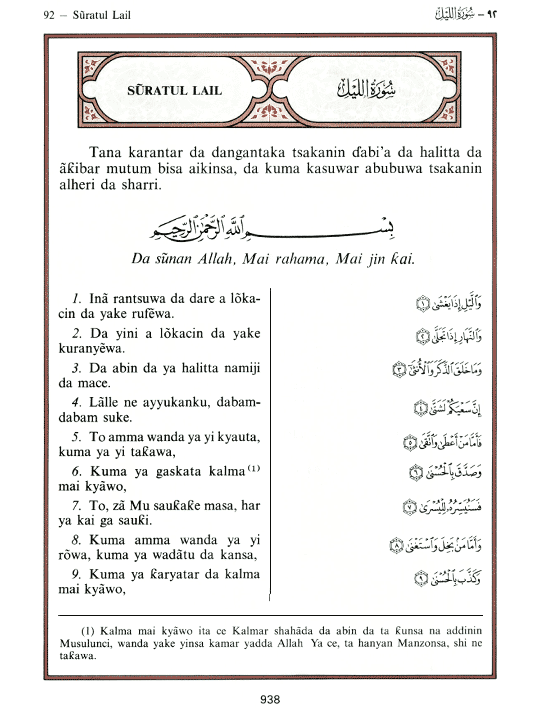 92 — Sũratul Lail
٩٢ — سُورَةُ اللَّيْلِ
SŨRATUL LAIL
سُورَةُ اللَّيْلِ
Tana karantar da dangantaka tsakanin ɗabi'a da halitta da
ãƙibar mutum bisa aikinsa, da kuma kasuwar abubuwa tsakanin
alheri da sharri.
بِسْمِ اللَّهِ الرَّحْمَٰنِ الرَّحِيمِ
Da sũnan Allah, Mai rahama, Mai jin ƙai.
1. Inã rantsuwa da dare a lõka-
cin da yake rufẽwa.
2. Da yini a lõkacin da yake
kuranyẽwa.
3. Da abin da ya halitta namiji
da mace.
4. Lãlle ne ayyukanku, dabam-
dabam suke.
5. To amma wanda ya yi kyauta,
kuma ya yi taƙawa,
6. Kuma ya gaskata kalma (1)
mai kyãwo,
7. To, zã Mu sauƙaƙe masa, har
ya kai ga sauƙi.
8. Kuma amma wanda ya yi
rõwa, kuma ya wadãtu da kansa,
9. Kuma ya ƙaryatar da kalma
mai kyãwo,
وَاللَّيْلِ إِذَا يَغْشَىٰ ١
وَالنَّهَارِ إِذَا تَجَلَّىٰ ٢
وَمَا خَلَقَ الذَّكَرَ وَالْأُنثَىٰ ٣
إِنَّ سَعْيَكُمْ لَشَتَّىٰ ٤
فَأَمَّا مَنْ أَعْطَىٰ وَاتَّقَىٰ ٥
وَصَدَّقَ بِالْحُسْنَىٰ ٦
فَسَنُيَسِّرُهُ لِلْيُسْرَىٰ ٧
وَأَمَّا مَنْ بَخِلَ وَاسْتَغْنَىٰ ٨
وَكَذَّبَ بِالْحُسْنَىٰ ٩
(1) Kalma mai kyãwo ita ce Kalmar shahãda da abin da ta ƙunsa na addinin
Musulunci, wanda yake yinsa kamar yadda Allah Ya ce, ta hanyan Manzonsa, shi ne
taƙawa.
938